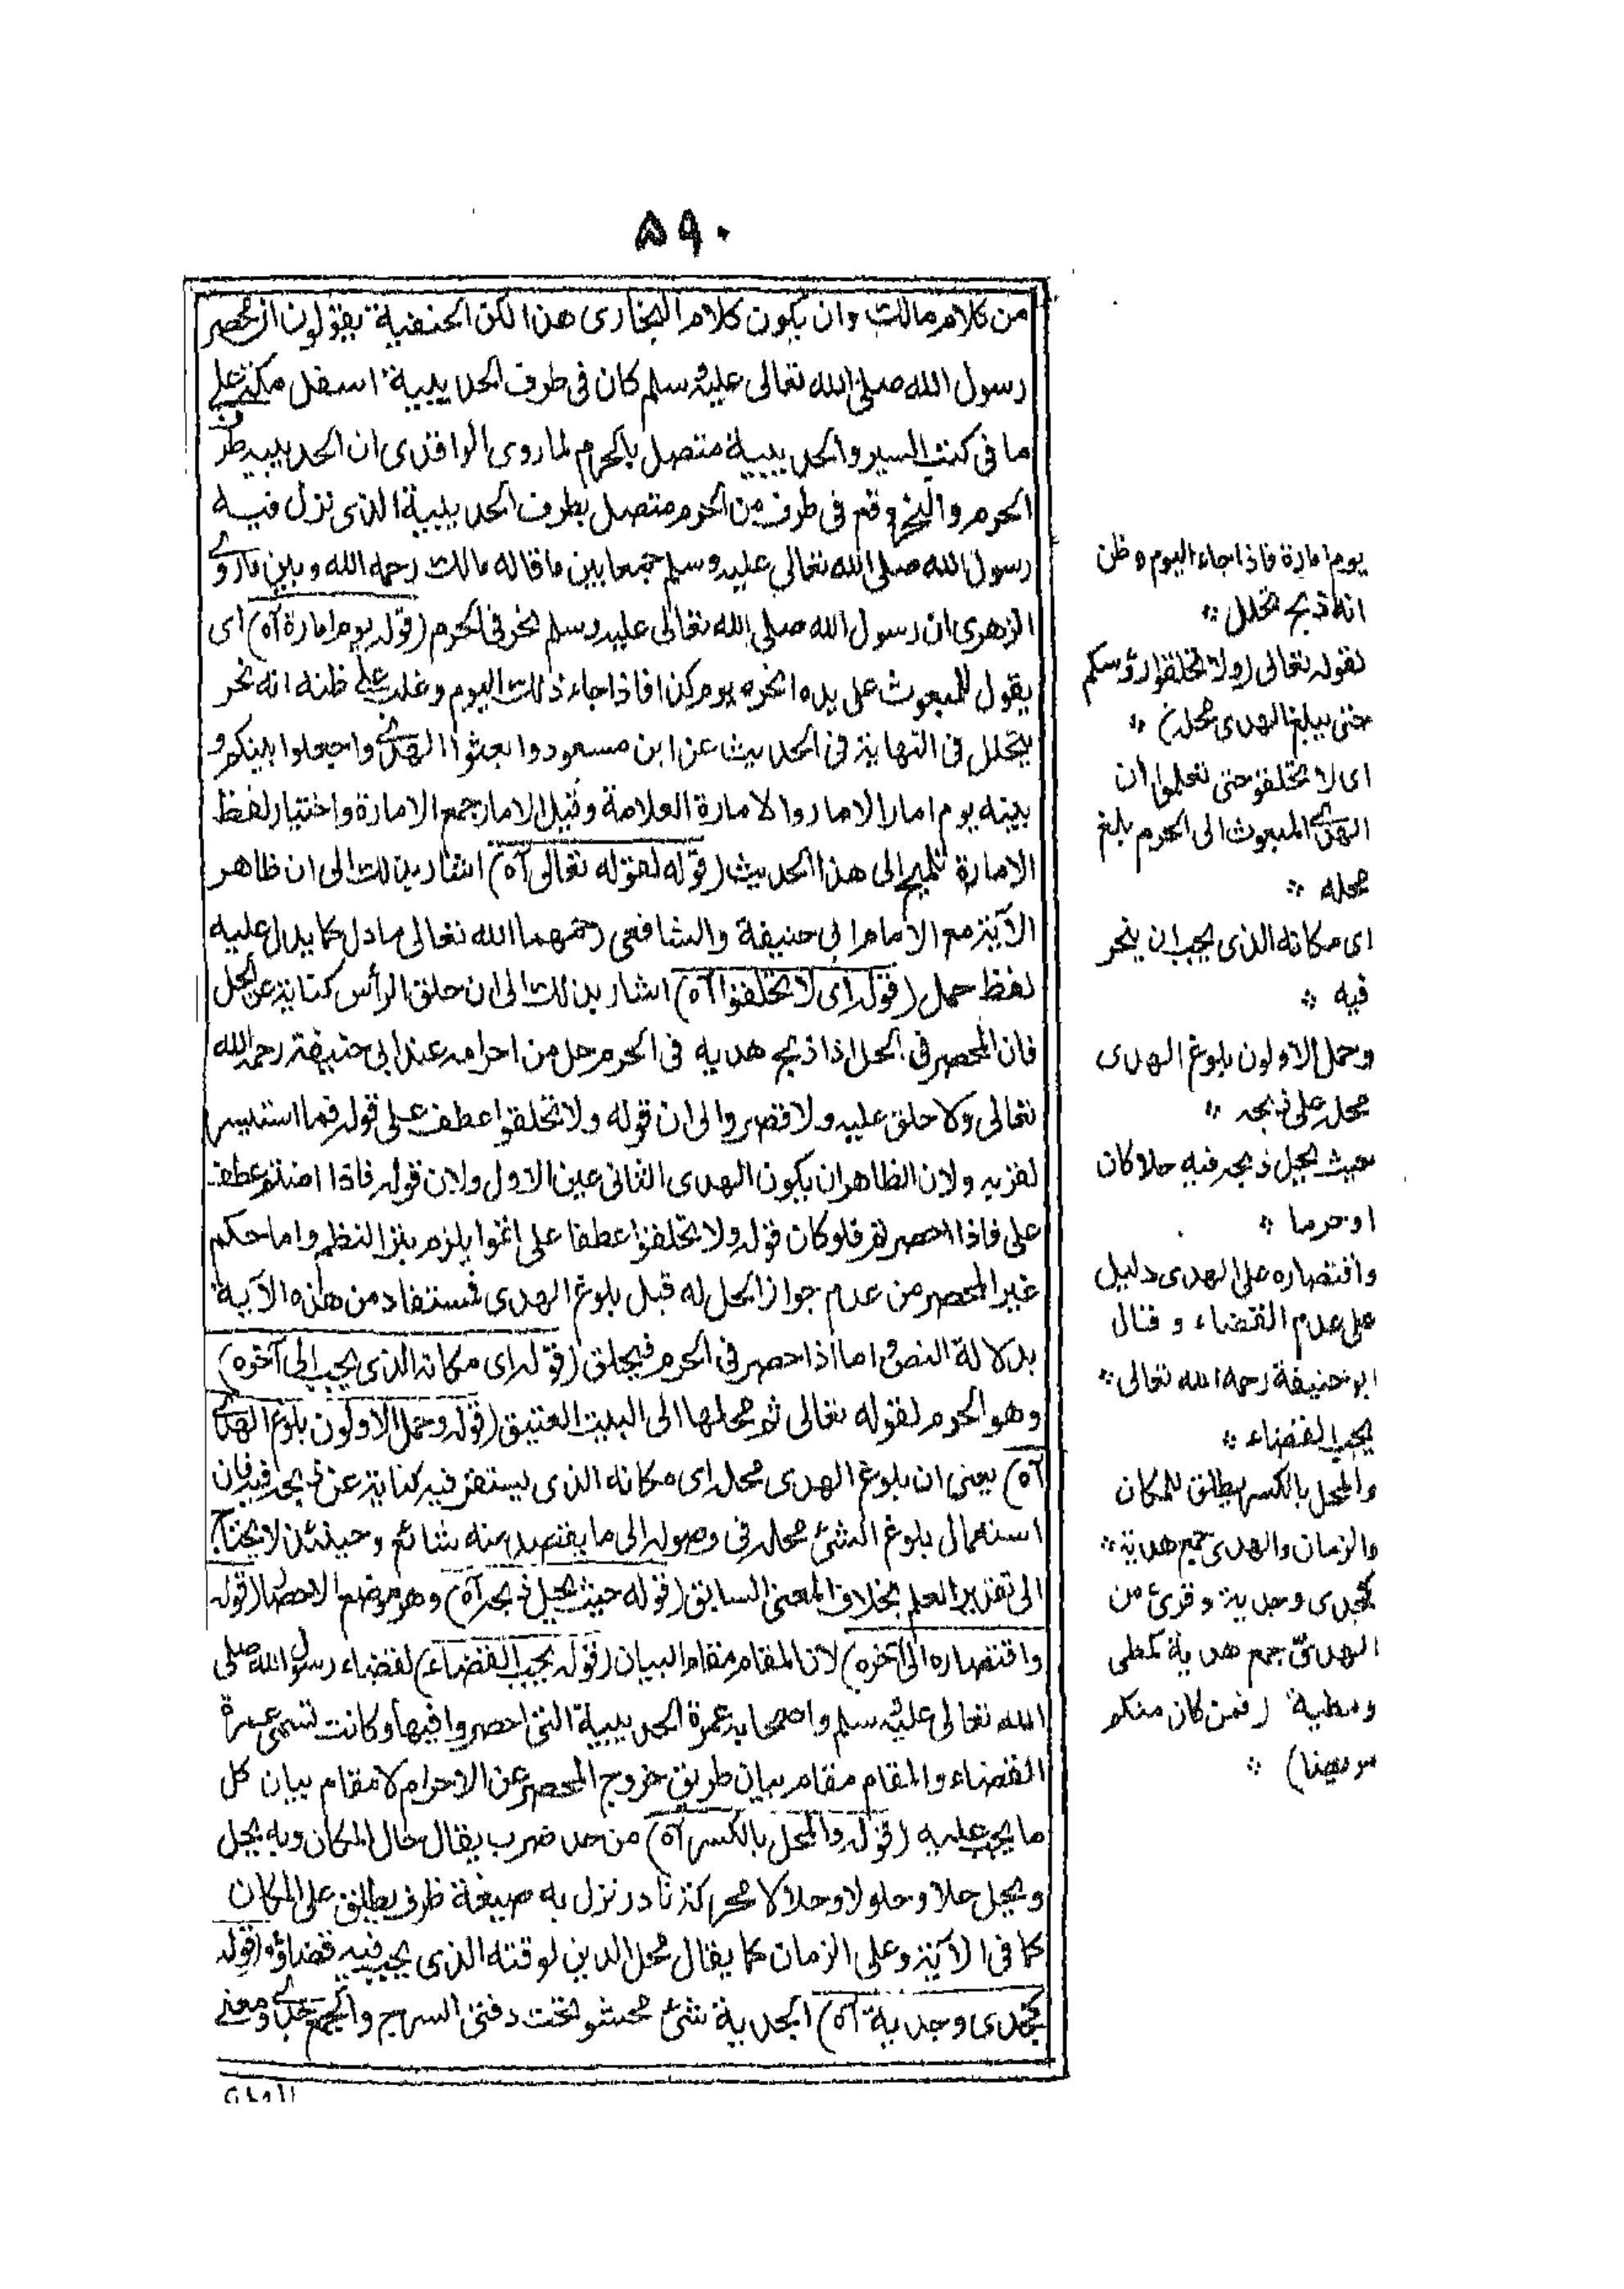 ۵۹۰
من كلام مالك وان يكون كلام البخارى هذا لكن الحنفية يقولون ان محصر
رسول الله صلى الله تعالى عليه وسلم كان فى طرف الحديبية اسفل مكة على
ما فى كتب السير والحديبية متصل بالحرم لما روى الواقدى ان الحديبية طرف
الحرم والنحر وقع فى طرف من الحرم متصل بطرف الحديبية الذى نزل فيه
رسول الله صلى الله تعالى عليه وسلم جمعا بين ما قاله مالك رحمه الله وبين ما روى
الزهرى ان رسول الله صلى الله تعالى عليه وسلم نحر فى الحرم (قوله يوم امارة آه) اى
يقول للمبعوث على يده انحره يوم كذا فاذا جاء ذلك اليوم وغلب على ظنه انه نحر
يتحلل فى النهاية فى الحديث عن ابن مسعود وابعثوا الهدى واجعلوا بينكم و
بينه يوم امار الامار والامارة العلامة وقيل الامار جمع الامارة واختيار لفظ
الامارة تلميح الى هذا الحديث (قوله لقوله تعالى آه) اشار بذلك الى ان ظاهر
الآية مع الامام ابى حنيفة والشافعى رحمهما الله تعالى مادل كما يدل عليه
لفظ حمل (قوله اى لا تحلقوا آه) اشار بذلك الى ان حلق الرأس كناية عن الحل
فان المحصر فى الحل اذا ذبح هديه فى الحرم حل من احرامه عند ابى حنيفة رحمه الله
تعالى ولا حلق عليه ولا قصر والى ان قوله ولا تحلقوا عطف على قوله فما استيسر
لقربه ولان الظاهر ان يكون الهدى الثانى عين الاول ولان قوله فاذا امنتم عطف
على فاذا احصرتم فلو كان قوله ولا تحلقوا عطفا على اتموا يلزم بتر النظم واما حكم
غير المحصر من عدم جواز الحل له قبل بلوغ الهدى فستفاد من هذه الآية
بدلالة النص واما اذا حصر فى الحرم فيحلق (قوله اى مكانه الذى يجب الى آخره)
وهو الحرم لقوله تعالى ثم محلها الى البيت العتيق (قوله وحمل الاولون بلوغ الهدى
آه) يعنى ان بلوغ الهدى محله اى مكانه الذى يستقر فيه كناية عن ذبحه فيه فان
استعمال بلوغ الشئ محله فى وصوله الى ما يقصد منه شائع وحينئذ لا يحتاج
الى تقدير العلم بخلاف المعنى السابق (قوله حيث يحل ذبحه آه) وهو موضع الاحصار (قوله
واقتصاره الى آخره) لان المقام مقام البيان (قوله يجب القضاء) لقضاء رسول الله صلى
الله تعالى عليه وسلم واصحابه عمرة الحديبية التى احصروا فيها وكانت تسمى عمرة
القضاء والمقام مقام بيان طريق خروج المحصر عن الاحرام لا مقام بيان كل
ما يجب عليه (قوله والمحل بالكسر آه) من حد ضرب يقال حال المكان وبه يحل
ويحل حلا وحلولا وحلالا محركة نادر نزل به صيغة ظرف يطلق على المكان
كما فى الآية وعلى الزمان كما يقال محل الدين لوقته الذى يجب فيه قضاؤه (قوله
كجدى وجدية آه) الجدية شئ محشو تحت دفتى السرج والجمع جدى ومعنى
يوم امارة فاذا جاء اليوم وظن
انه ذبح تحلل
لقوله تعالى (ولا تحلقوا رؤسكم
حتى يبلغ الهدى محله)
اى لا تحلقو حتى تعلموا ان
الهدى المبعوث الى الحرم بلغ
محله
اى مكانه الذى يجب ان ينحر
فيه
وحمل الاولون بلوغ الهدى
محله على ذبحه
حيث يحل ذبحه فيه حلا كان
او حرما
واقتصاره على الهدى دليل
على عدم القضاء وقال
ابو حنيفة رحمه الله تعالى
يجب القضاء
والمحل بالكسر يطلق للمكان
والزمان والهدى جمع هدية
كجدى وجدية وقرئ من
الهدىّ جمع هدية كمطى
ومطية (فمن كان منكم
مريضا)